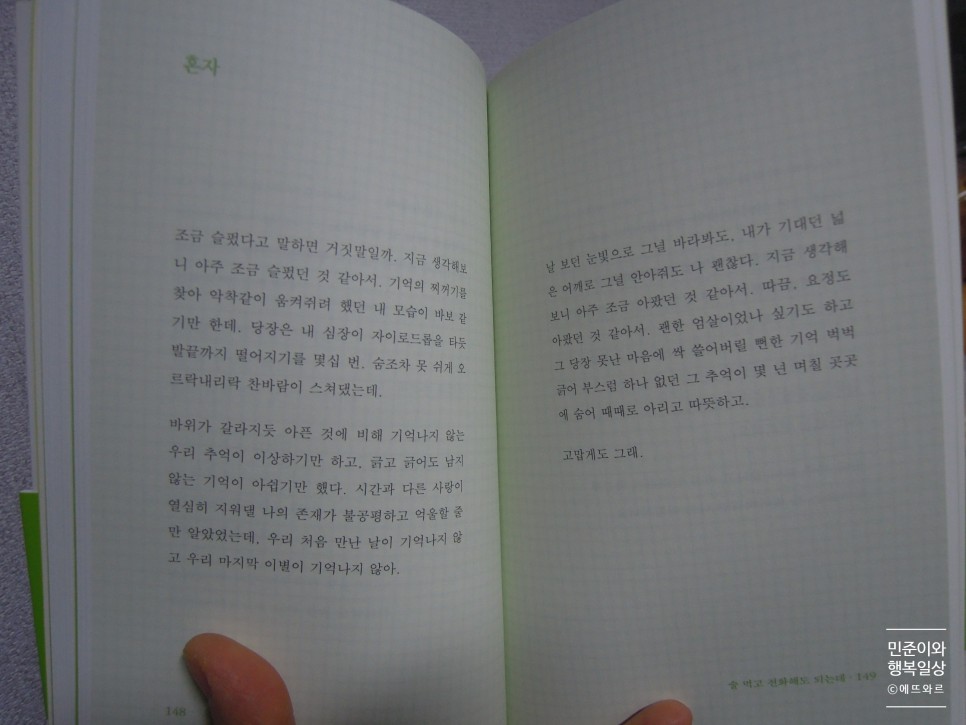 혼자
조금 슬펐다고 말하면 거짓말일까. 지금 생각해보
니 아주 조금 슬펐던 것 같아서. 기억의 찌꺼기를
찾아 악착같이 움켜쥐려 했던 내 모습이 바보 같
기만 한데. 당장은 내 심장이 자이로드롭을 타듯
발끝까지 떨어지기를 몇십 번. 숨조차 못 쉬게 오
르락내리락 찬바람이 스쳐댔는데.
바위가 갈라지듯 아픈 것에 비해 기억나지 않는
우리 추억이 이상하기만 하고, 긁고 긁어도 남지
않는 기억이 아쉽기만 했다. 시간과 다른 사랑이
열심히 지워댈 나의 존재가 불공평하고 억울할 줄
만 알았었는데, 우리 처음 만난 날이 기억나지 않
고 우리 마지막 이별이 기억나지 않아.
148
날 보던 눈빛으로 그녈 바라봐도, 내가 기대던 넓
은 어깨로 그녈 안아줘도 나 괜찮다. 지금 생각해
보니 아주 조금 아팠던 것 같아서. 따끔, 요정도
아팠던 것 같아서. 괜한 엄살이었나 싶기도 하고
그 당장 못난 마음에 싹 쓸어버릴 뻔한 기억 벅벅
긁어 부스럼 하나 없던 그 추억이 몇 년 며칠 곳곳
에 숨어 때때로 아리고 따뜻하고.
고맙게도 그래.
술 먹고 전화해도 되는데 · 149
민준이와
행복일상
©에뜨와르